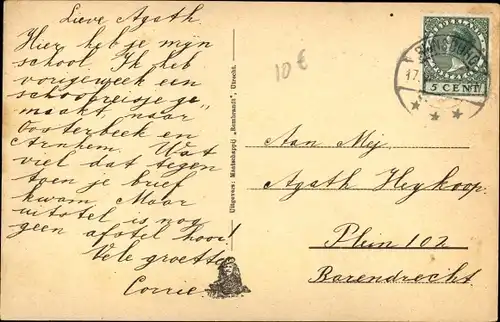 Lieve Agath.
Hier heb je mijn
school. Ik heb
vorigeweek een
schoolreisje ge„
maakt, naar
Oosterbeek en
Arnhem. Wat
viel dat tegen
toen je brief
kwam. Maar
uitstel is nog
geen afstel hoor!
Vele groeten
Corrie
Uitgevers: Maatschappij „Rembrandt", Utrecht.
10 €
NEDERLAND
5 CENT
17.
Aan Mej.
Agath Heykoop.
Plein 102
Barendrecht